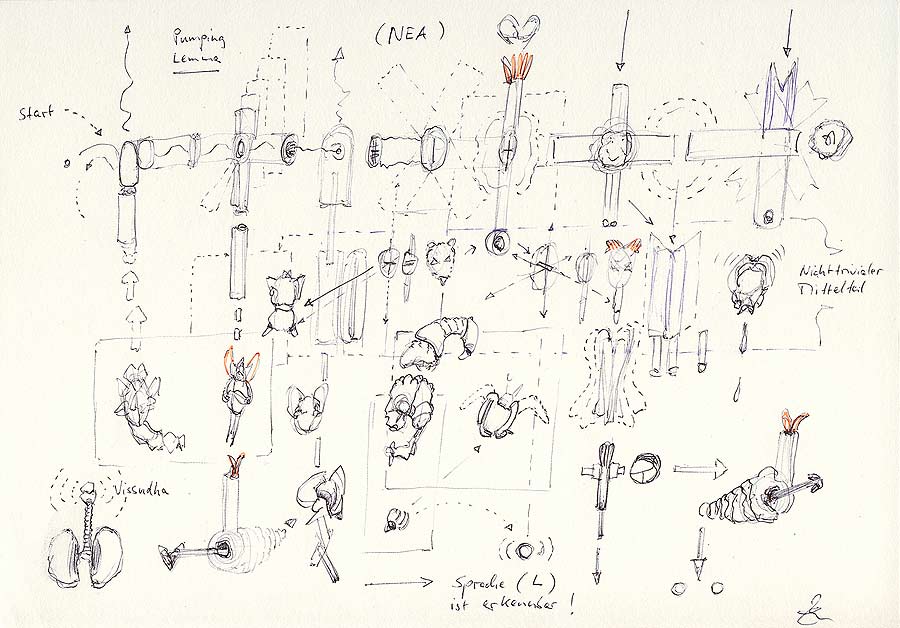 Pumping
Lemma
(NEA)
Start
Nichttrivialer
Mittelteil
Vissudha
Sprache (L)
ist erkennbar !